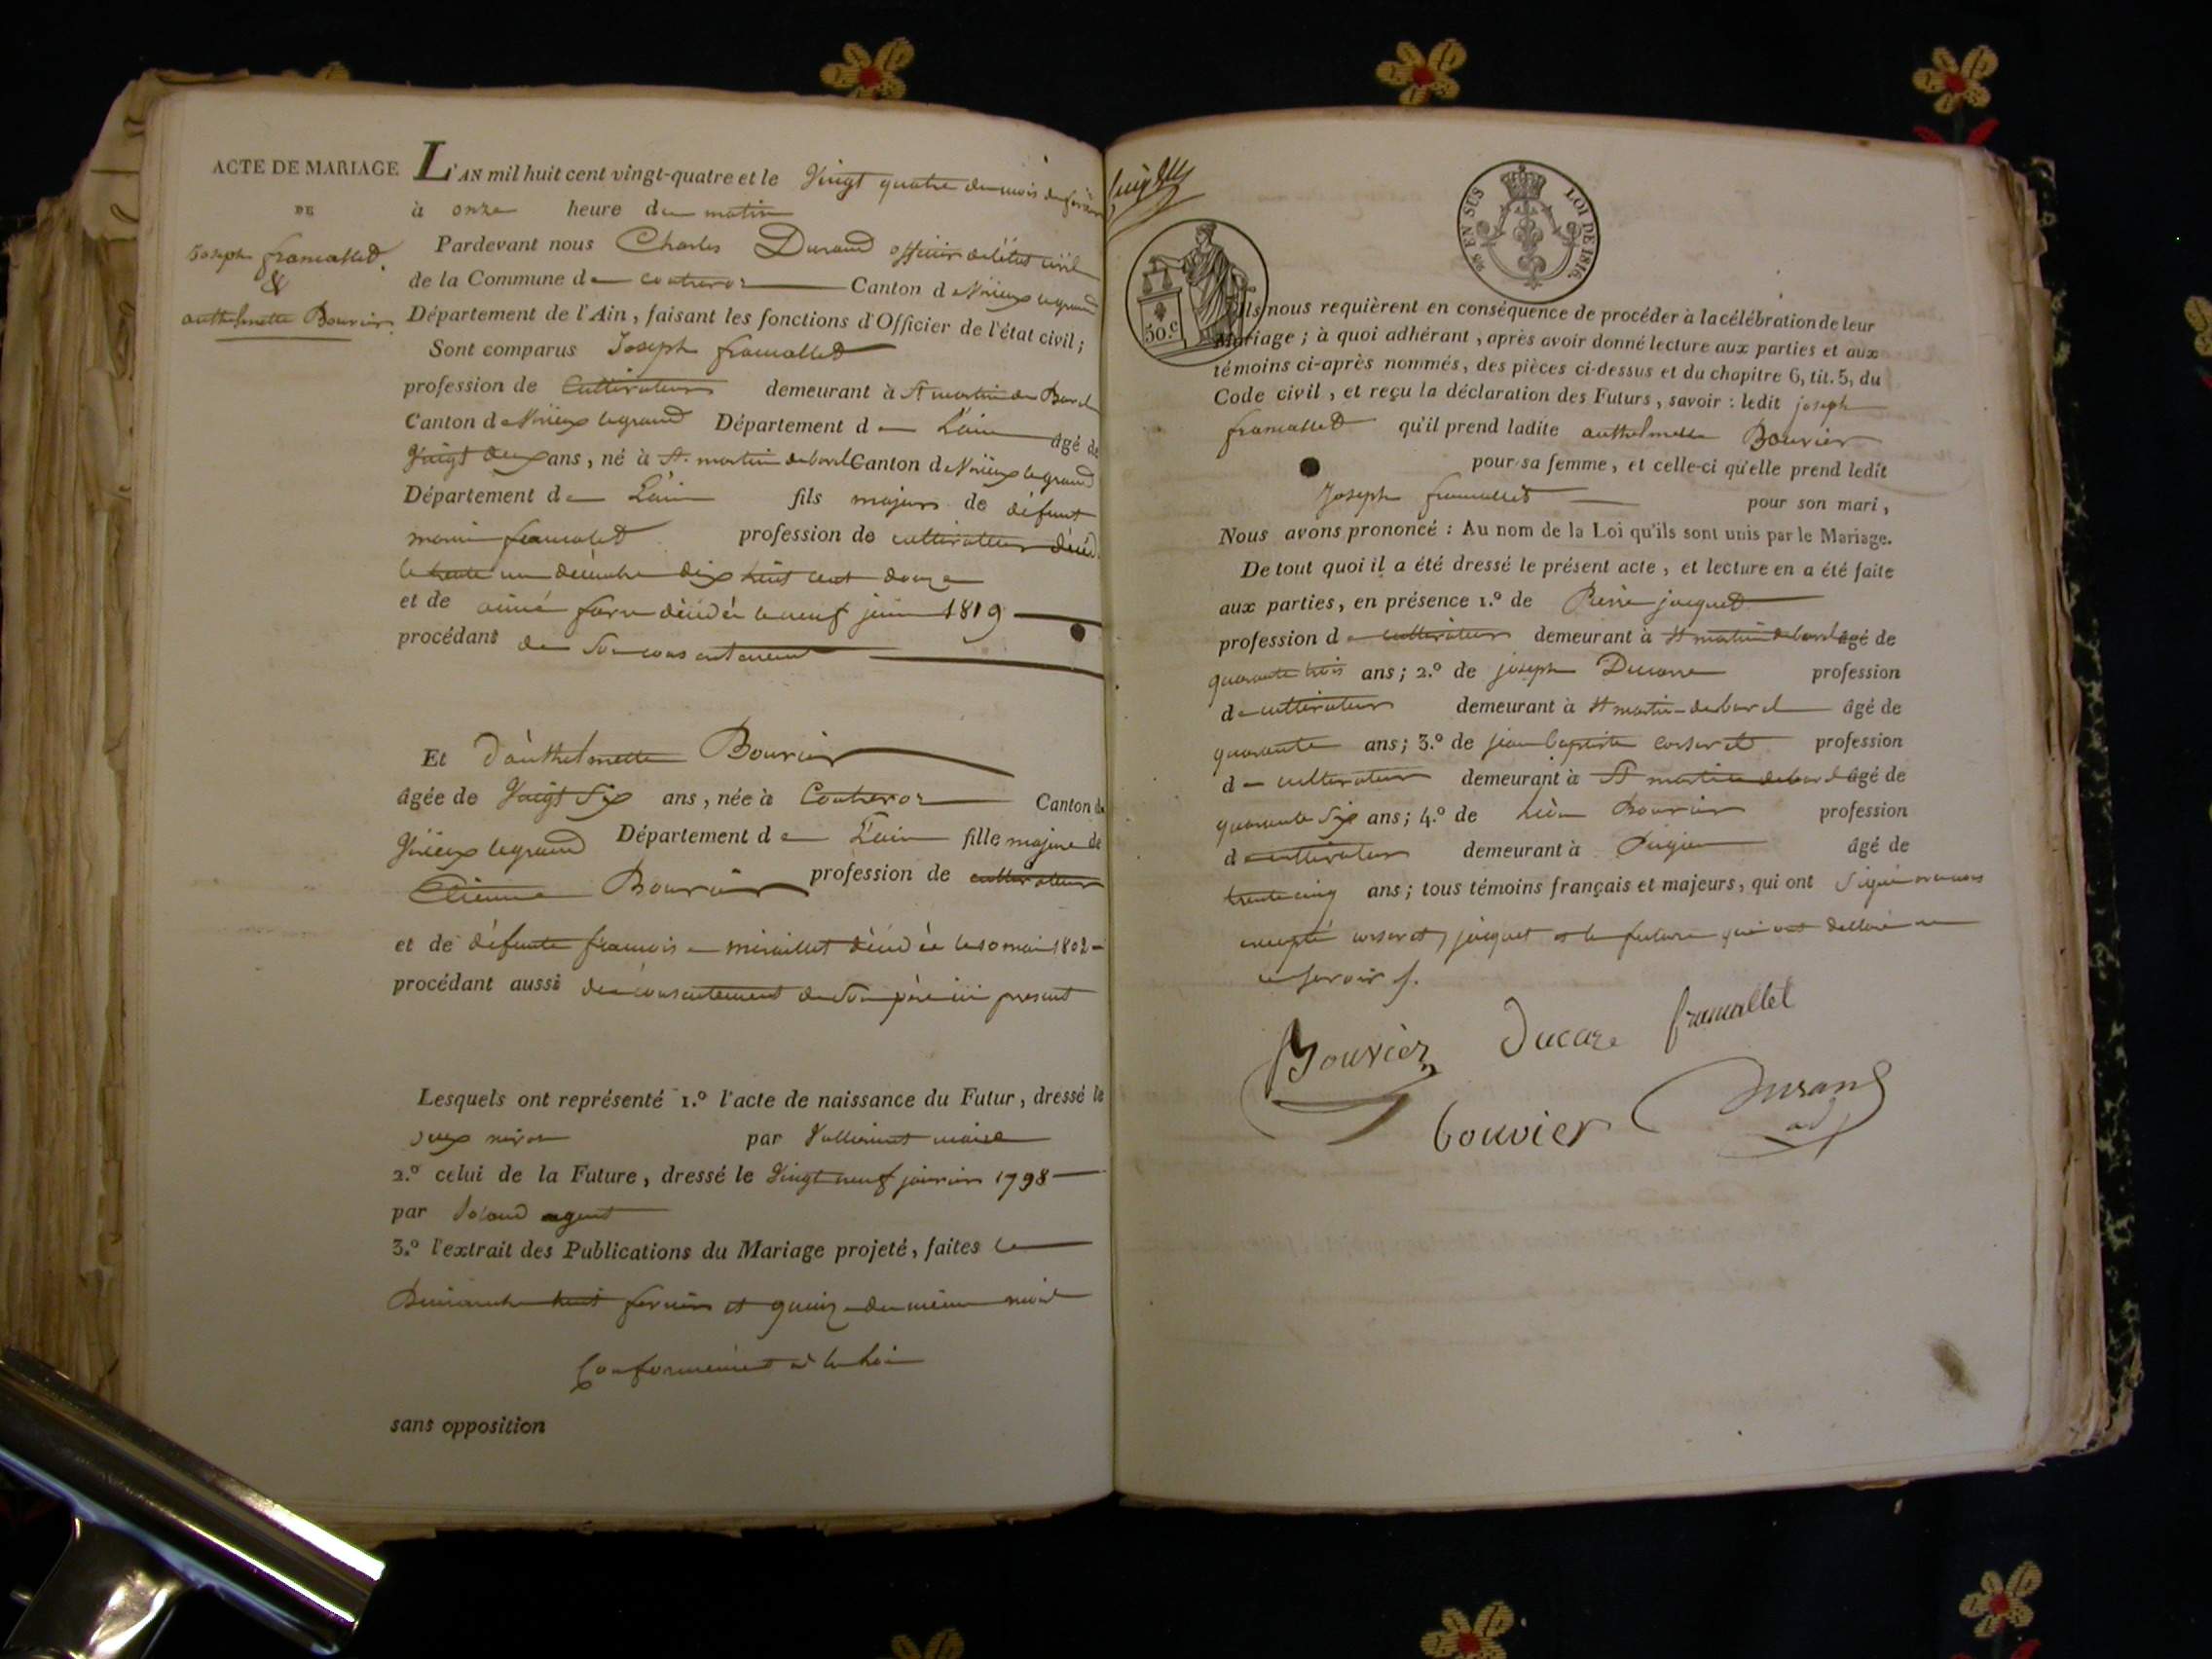 ACTE DE MARIAGE
DE
Joseph framallet
&
anthelmette Bouvier
L'AN mil huit cent vingt-quatre et le Vingt quatre du mois de
à onze heure du matin
Pardevant nous Charles Durand officier de létat civil
de la Commune de contrevoz Canton de Virieux legrand
Département de l'Ain, faisant les fonctions d'Officier de l'état civil;
Sont comparus Joseph framallet
profession de Cultivateur demeurant à St martin de Bavel
Canton de Virieux legrand Département de L'ain âgé de
Vingt deux ans, né à St. martin de bavel Canton de Virieux legrand
Département de L'ain fils majeur de défunt
framalet profession de cultivateur décéd
le trente un décembre dix huit cent douze
et de décédée le neuf juin 1819
procédant de Son consentement
Et d'anthelmette Bouvier
âgée de Vingt Six ans, née à Contrevoz Canton de
Virieux legrand Département de L'ain fille majeure de
Etienne Bouvier profession de cultivateur
et de défunte françoise miraillet décédée le 10 mai 1802
procédant aussi du consentement de Son père ici present
Lesquels ont représenté 1.º l'acte de naissance du Futur, dressé le
par maire
2.º celui de la Future, dressé le Vingt neuf janvier 1798
par agent
3.º l'extrait des Publications du Mariage projeté, faites le
Dimanche huit fevrier et quinze du même mois
Conformément a la Loi
sans opposition
9/10 EN SUS LOI DE 1816.
50.c
Ils nous requièrent en conséquence de procéder à la célébration de leur
Mariage; à quoi adhérant, après avoir donné lecture aux parties et aux
témoins ci-après nommés, des pièces ci-dessus et du chapitre 6, tit. 5, du
Code civil, et reçu la déclaration des Futurs, savoir: ledit joseph
framallet qu'il prend ladite anthelmette Bouvier
pour sa femme, et celle-ci qu'elle prend ledit
Joseph framallet pour son mari,
Nous avons prononcé: Au nom de la Loi qu'ils sont unis par le Mariage.
De tout quoi il a été dressé le présent acte, et lecture en a été faite
aux parties, en présence 1.º de Pierre jacquet
profession de cultivateur demeurant à St martin de bavel âgé de
quarante trois ans; 2.º de joseph Ducarre profession
de cultivateur demeurant à St martin de bavel âgé de
quarante ans; 3.º de jean baptiste corseret profession
de cultivateur demeurant à St martin de bavel âgé de
quarante Six ans; 4.º de Bouvier profession
de cultivateur demeurant à Pugieu âgé de
trente cinq ans; tous témoins français et majeurs, qui ont Signé avec nous
excepté corseret, jacquet et la future qui ont déclaré ne
le Savoir
Bouvier Ducare framallet
bouvier Durand